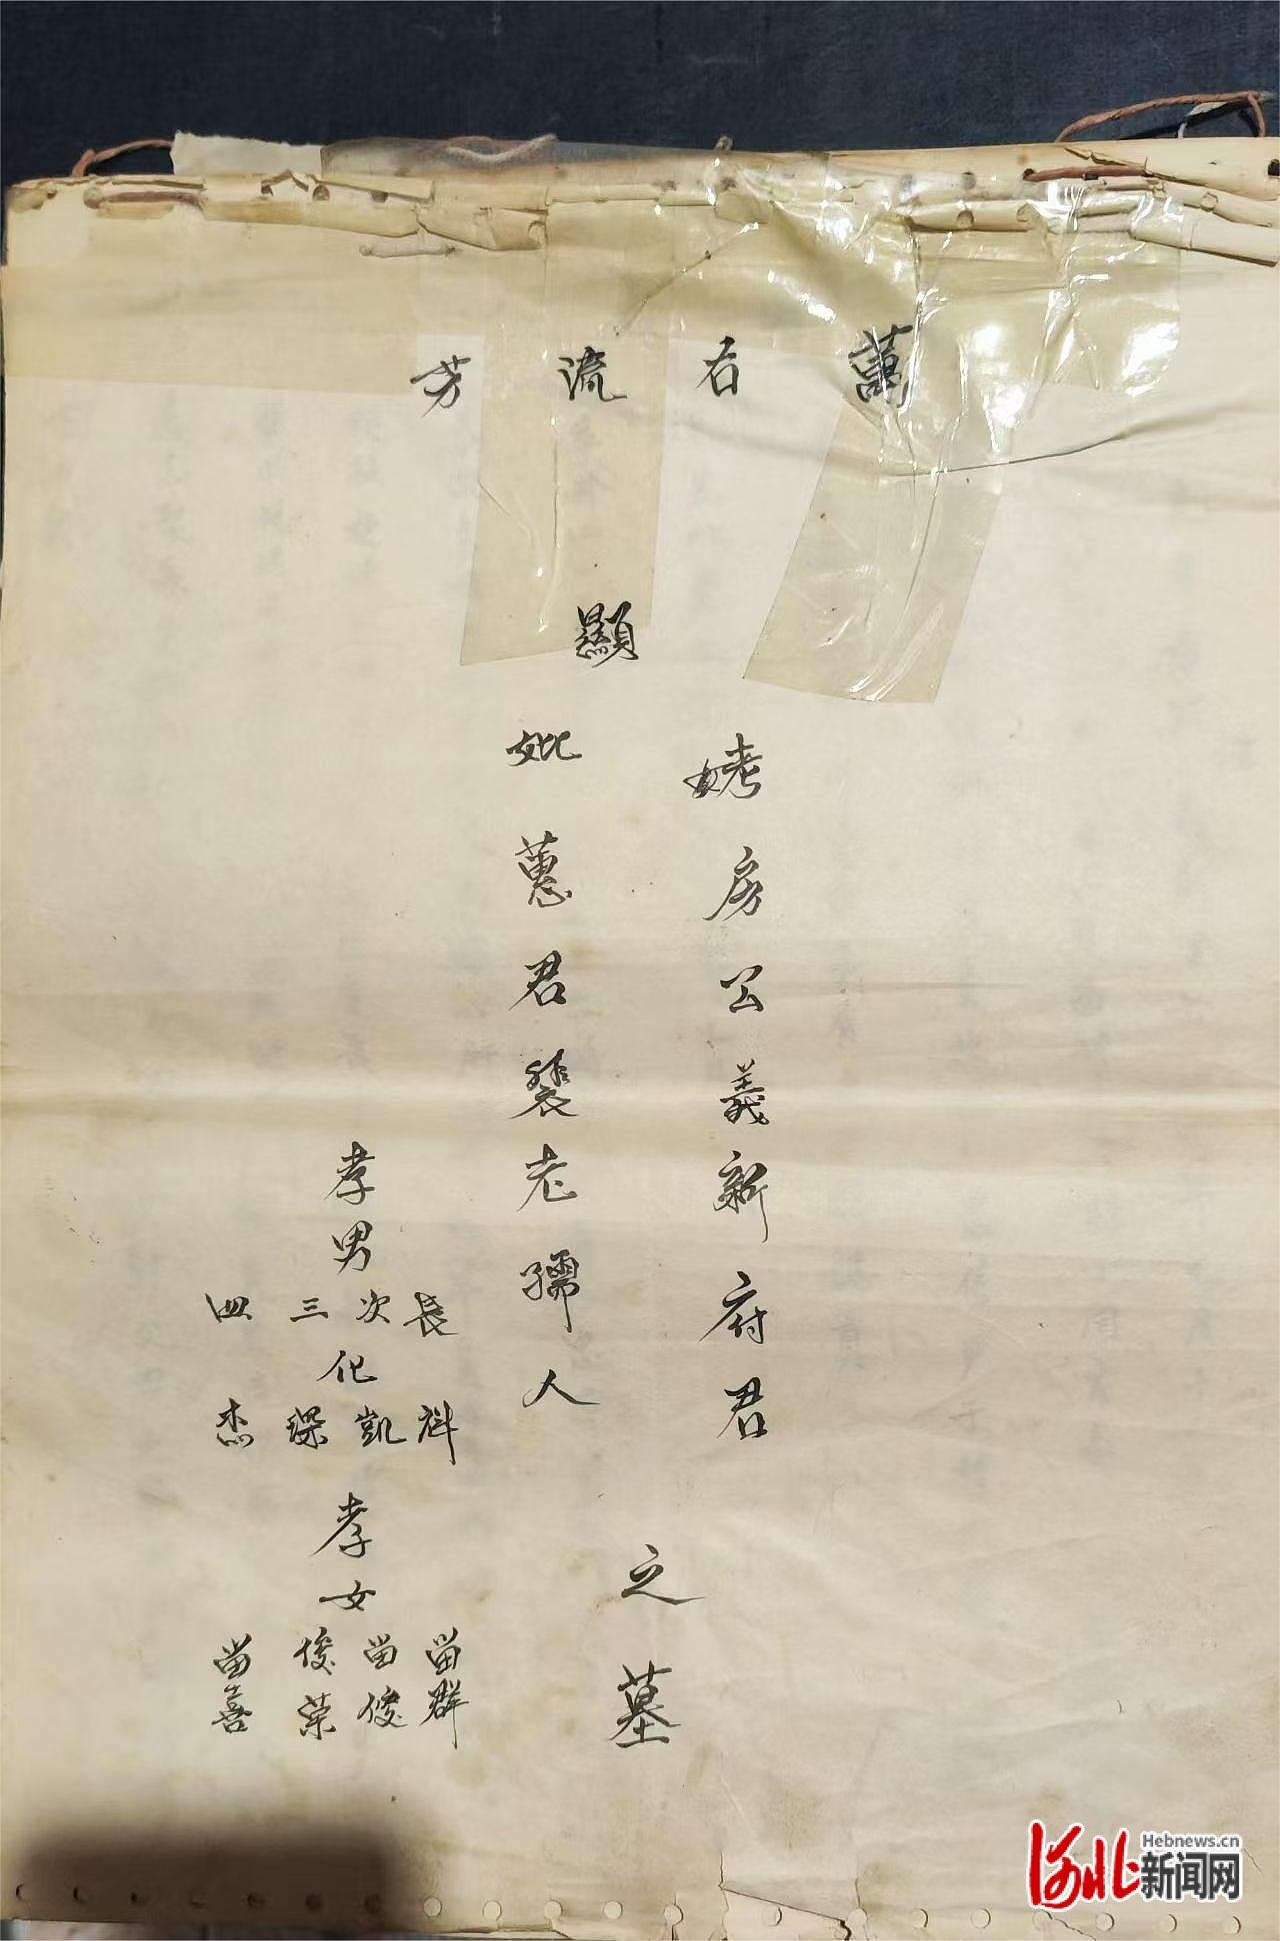 萬石流芳
顯
考房公義新府君
妣蕙君裴老孺人
之墓
孝男
長次三四
化
科凱琛杰
孝女
苗群
苗俊
俊荣
苗喜
Hebnews.cn
河北新闻网